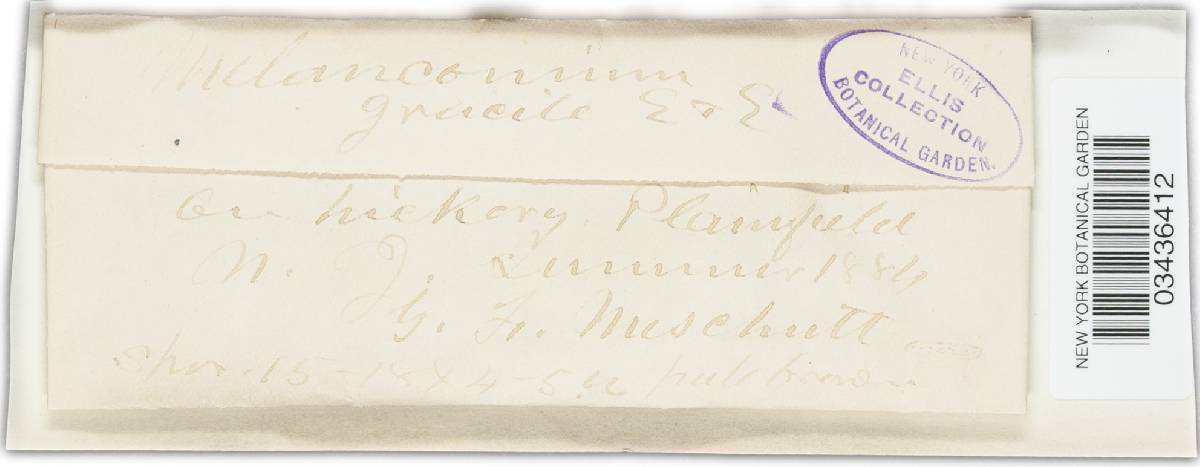 Melanconium
gracile E & E
NEW YORK
ELLIS
COLLECTION
BOTANICAL GARDEN.
On hickory. Plainfield
N. J. Summer 1886
G. F. Meschutt
spor. 15-18 x 4-5 µ pale brown
NEW YORK BOTANICAL GARDEN
03436412